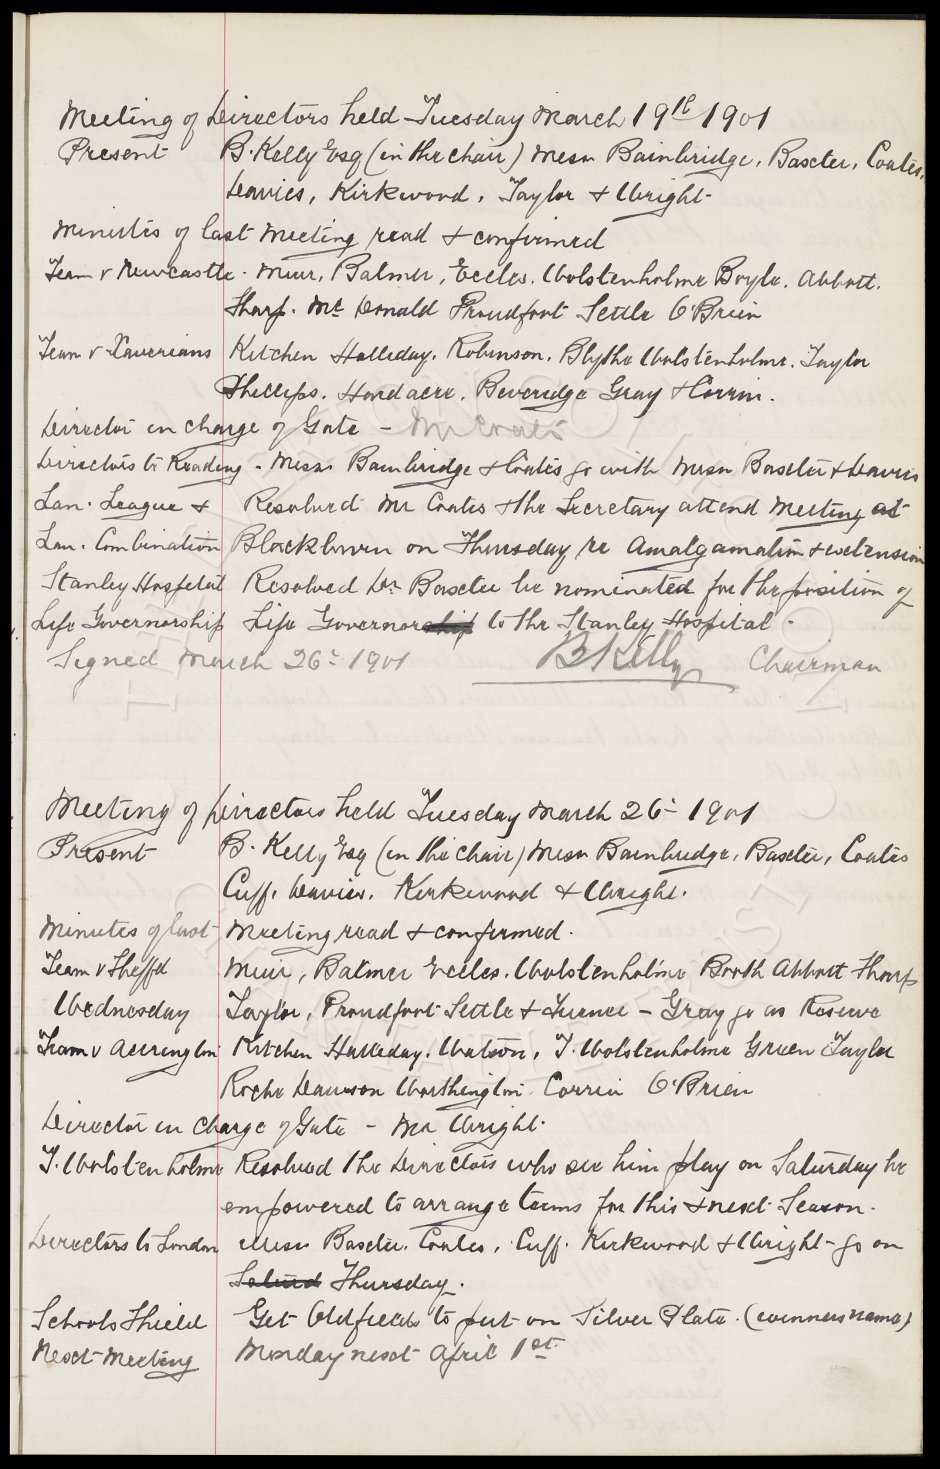 Meeting of Directors held Tuesday March 19th 1901
Present B. Kelly Esq (in the chair) Messrs Bainbridge, Baxter, Coates,
Davies, Kirkwood, Taylor & Wright.
Minutes of last Meeting read & confirmed
Team v Newcastle. Muir, Balmer, Eccles. Wolstenholme Boyle. Abbott.
Sharp. McDonald Proudfoot Settle O'Brien
Team v Xaverians Kitchen Halliday. Robinson. Blythe Wolstenholme. Taylor
Phillips. Hardacre. Beveridge Gray & Corrin.
Director in charge of Gate – Mr Coates
Directors to Reading. Messrs Bainbridge & Coates go with Messrs Baxter & Davies
Lan. League & Resolved Mr Coates & the Secretary attend Meeting at
Lan. Combination Blackburn on Thursday re Amalgamation & extension
Stanley Hospital Resolved Dr Baxter be nominated for the position of
Life Governorship Life Governorship to the Stanley Hospital.
Signed March 26th 1901 B Kelly Chairman
Meeting of Directors held Tuesday March 26th 1901
Present B. Kelly Esq (in the chair) Messrs Bainbridge, Baxter, Coates
Cuff, Davies, Kirkwood & Wright.
Minutes of last Meeting read & confirmed.
Team v Sheffd Muir, Balmer Eccles. Wolstenholme Booth Abbott Sharp
Wednesday Taylor, Proudfoot Settle & Turner – Gray go as Reserve
Team v Accrington Kitchen Halliday. Watson, T. Wolstenholme Green Taylor
Roche Dawson Worthington Corrin O'Brien
Director in charge of Gate – Mr Wright.
T. Wolstenholme Resolved the Directors who see him play on Saturday be
empowered to arrange terms for this & next Season.
Directors to London Messrs Baxter. Coates, Cuff. Kirkwood & Wright – go on
Thursday.
Schools Shield Get Oldfields to put on Silver Plate. (winners name)
Next Meeting Monday next April 1st.